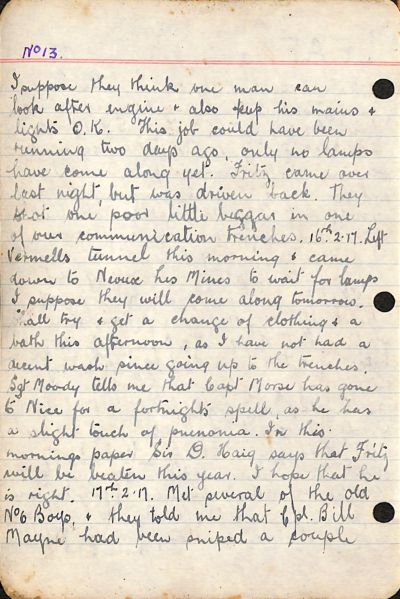 No 13.
I suppose they think one man can
look after engine & also keep his mains &
lights O.K. This job could have been
running two days ago, only no lamps
have come along yet. Fritz came over
last night, but was driven back. They
shot one poor little beggar in one
of our communication trenches. 16th.2.17. Left
Vermells tunnel this morning & came
down to Neoux les Mines to wait for lamps
I suppose they will come along tomorrow.
Shall try & get a change of clothing & a
bath this afternoon, as I have not had a
decent wash since going up to the trenches.
Sgt Moody tells me that Capt Morse has gone
to Nice for a fortnights spell, as he has
a slight touch of pnenonia. In this
mornings paper Sir D. Haig says that Fritz
will be beaten this year. I hope that he
is right. 17th.2.17. Met several of the old
No 6 Boys, & they told me that Cpl. Bill
Mayne had been sniped a couple